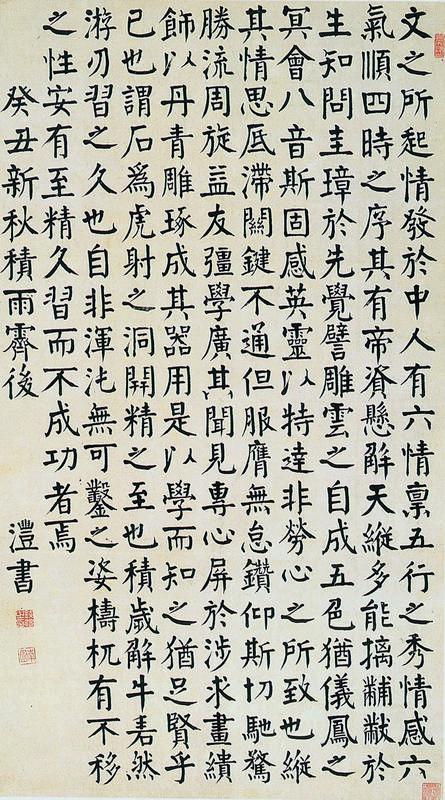 文之所起情發於中人有六情禀五行之秀情感六
氣順四時之序其有帝資懸解天縱多能摛黼黻於
生知問圭璋於先覺譬雕雲之自成五色猶儀鳳之
冥會八音斯固感英靈以特達非勞心之所致也縱
其情思底滯關鍵不通但服膺無怠鑽仰斯切馳騖
勝流周旋益友彊學廣其聞見專心屏於涉求畫繢
飾以丹青雕琢成其器用是以學而知之猶足賢乎
已也謂石爲虎射之洞開精之至也積歲解牛砉然
游刃習之久也自非渾沌無可鑿之姿檮杌有不移
之性安有至精久習而不成功者焉
癸丑新秋積雨霽後
澧書